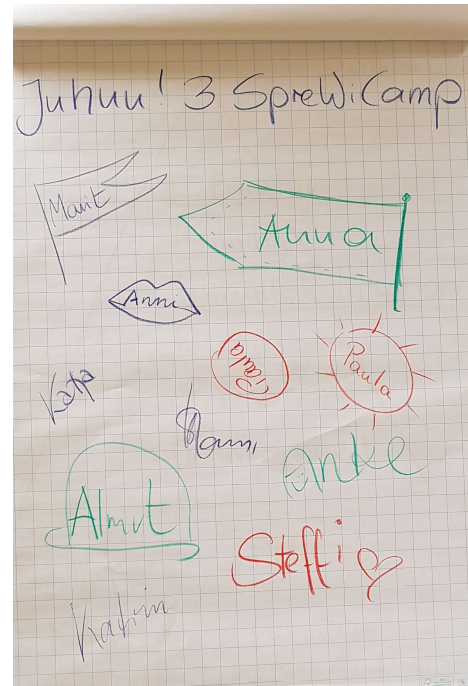 Juhuu! 3 SpreWiCamp
Marit
Anna
Anni
Paula
Paula
Katja
Anke
Almut
Steffi
Katrin